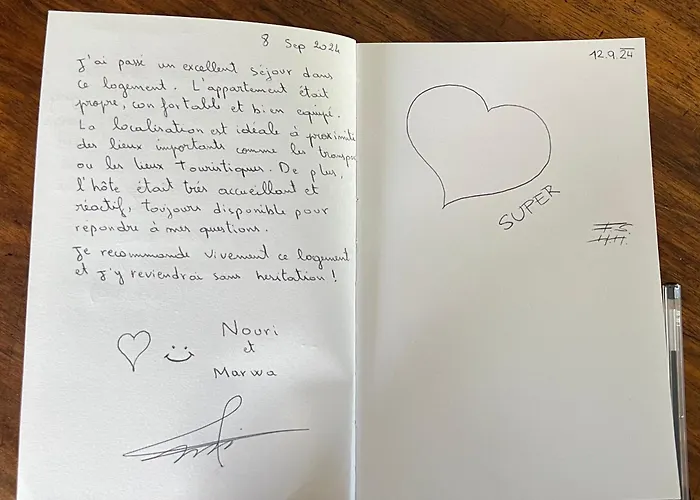 8 Sep 2024
J'ai passé un excellent séjour dans
ce logement. L'appartement était
propre, confortable et bien equipé.
La localisation est idéale à proximité
des lieux importants comme les transpo
ou les lieux touristiques. De plus,
l'hôte était très accueillant et
réactif, toujours disponible pour
répondre à mes questions.
Je recommande vivement ce logement
et j'y reviendrai sans hesitation !
Nouri
et
Marwa
12.9.24
SUPER